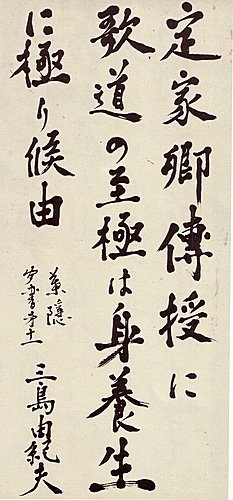 定家卿傳授に
歌道の至極は身養生
に極り候由
葉隠
三島由紀夫